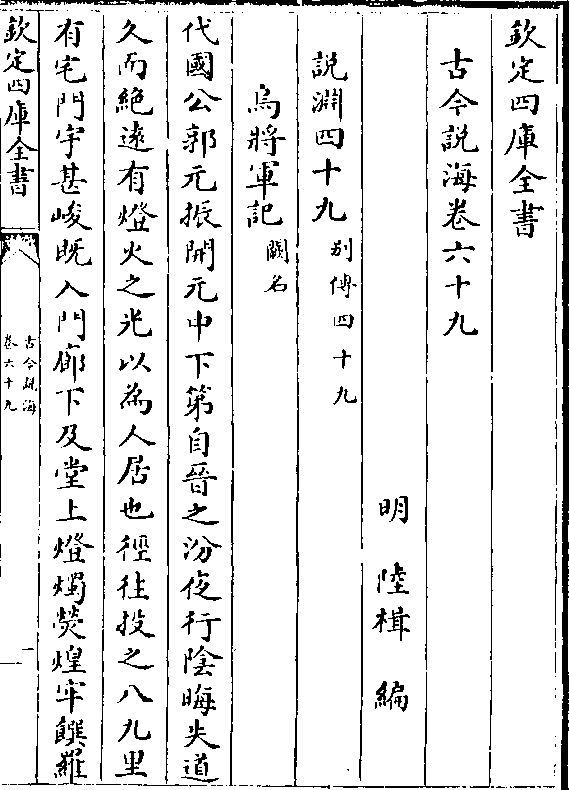 欽定四庫全書
古今說海卷六十九
明 陸楫 編
說淵四十九 别傳四十九
烏將軍記 闕名
代國公郭元振開元中下第自晉之汾夜行陰晦失道
久而絶逺有燈火之光以為人居也徑往投之八九里
有宅門宇甚峻既入門廊下及堂上燈燭熒煌牢饌羅
欽定四庫全書
古今說海
卷六十九
一